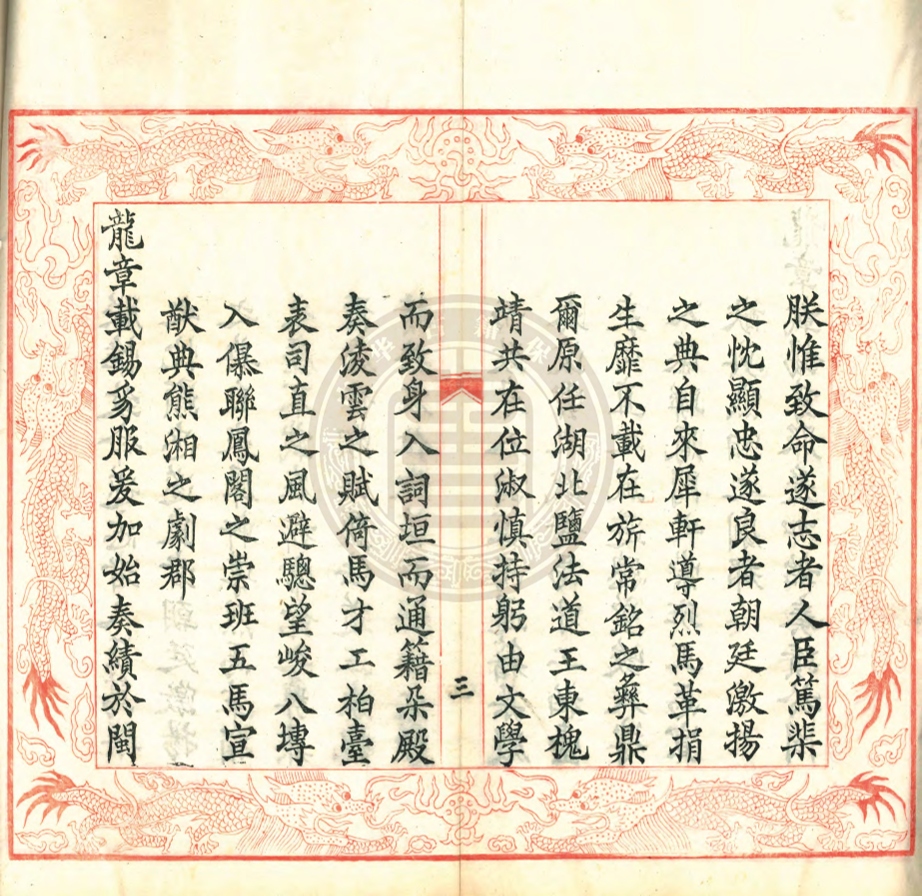 朕惟致命遂志者人臣篤棐
之忱顯忠遂良者朝廷激揚
之典自來犀軒導烈馬革捐
生靡不載在旂常銘之彝鼎
爾原任湖北鹽法道王東槐
靖共在位淑慎持躬由文學
三
而致身入詞垣而通籍朵殿
奏淩雲之賦倚馬才工柏臺
表司直之風避驄望峻八塼
入儤聯鳳閣之崇班五馬宣
猷典熊湘之劇郡
龍章載錫豸服爰加始奏績於閩